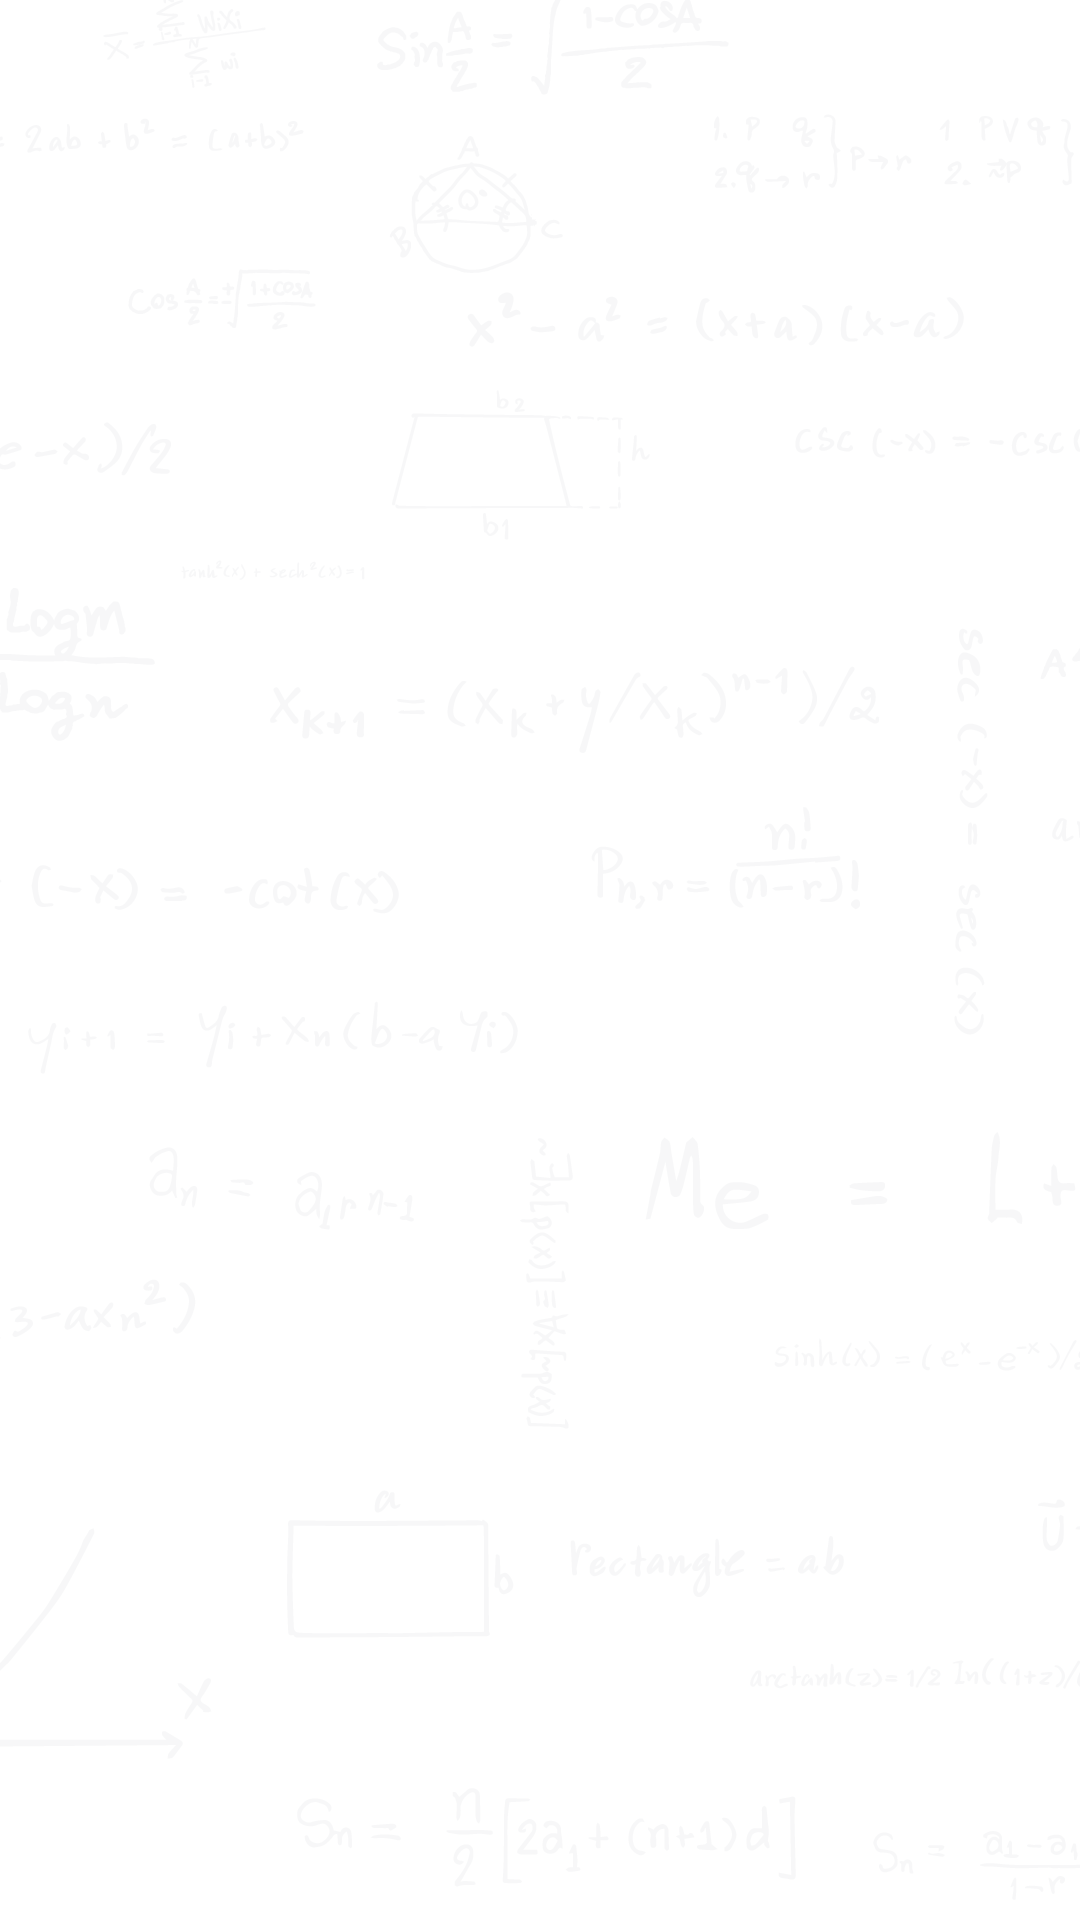 x̄ = Σ i=1 WiXi / Σ n i=1 wi
Sin A/2 = √(1-cosA / 2)
= 2ab + b² = (a+b)²
1. P q } P→r
2. q → r
1 P V q }
2. ~P
A
O
B C
Cos A/2 = ±√(1+cosA / 2)
x² - a² = (x+a) (x-a)
b2
h
b1
e-x)/2
csc (-x) = -csc (
tanh²(x) + sech²(x) = 1
Logm
Logn
A
Xk+1 = (Xk + y/Xk)ⁿ⁻¹)/2
sec (-x) = sec (x)
(-x) = -cot (x)
Pn,r = n! / (n-r)!
yi+1 = yi + xn (b-a yi)
an = a1 r n-1
~Ex[p(x)] ≡ Ax[~p(x)]
Me = L +
3-axn²)
sinh(x) = (eˣ - e⁻ˣ)/2
a
b
rectangle = ab
U
x
arctanh(z) = 1/2 ln((1+z)/
Sn = n/2 [2a1 + (n+1) d]
Sn = a1 - a1 / 1-r